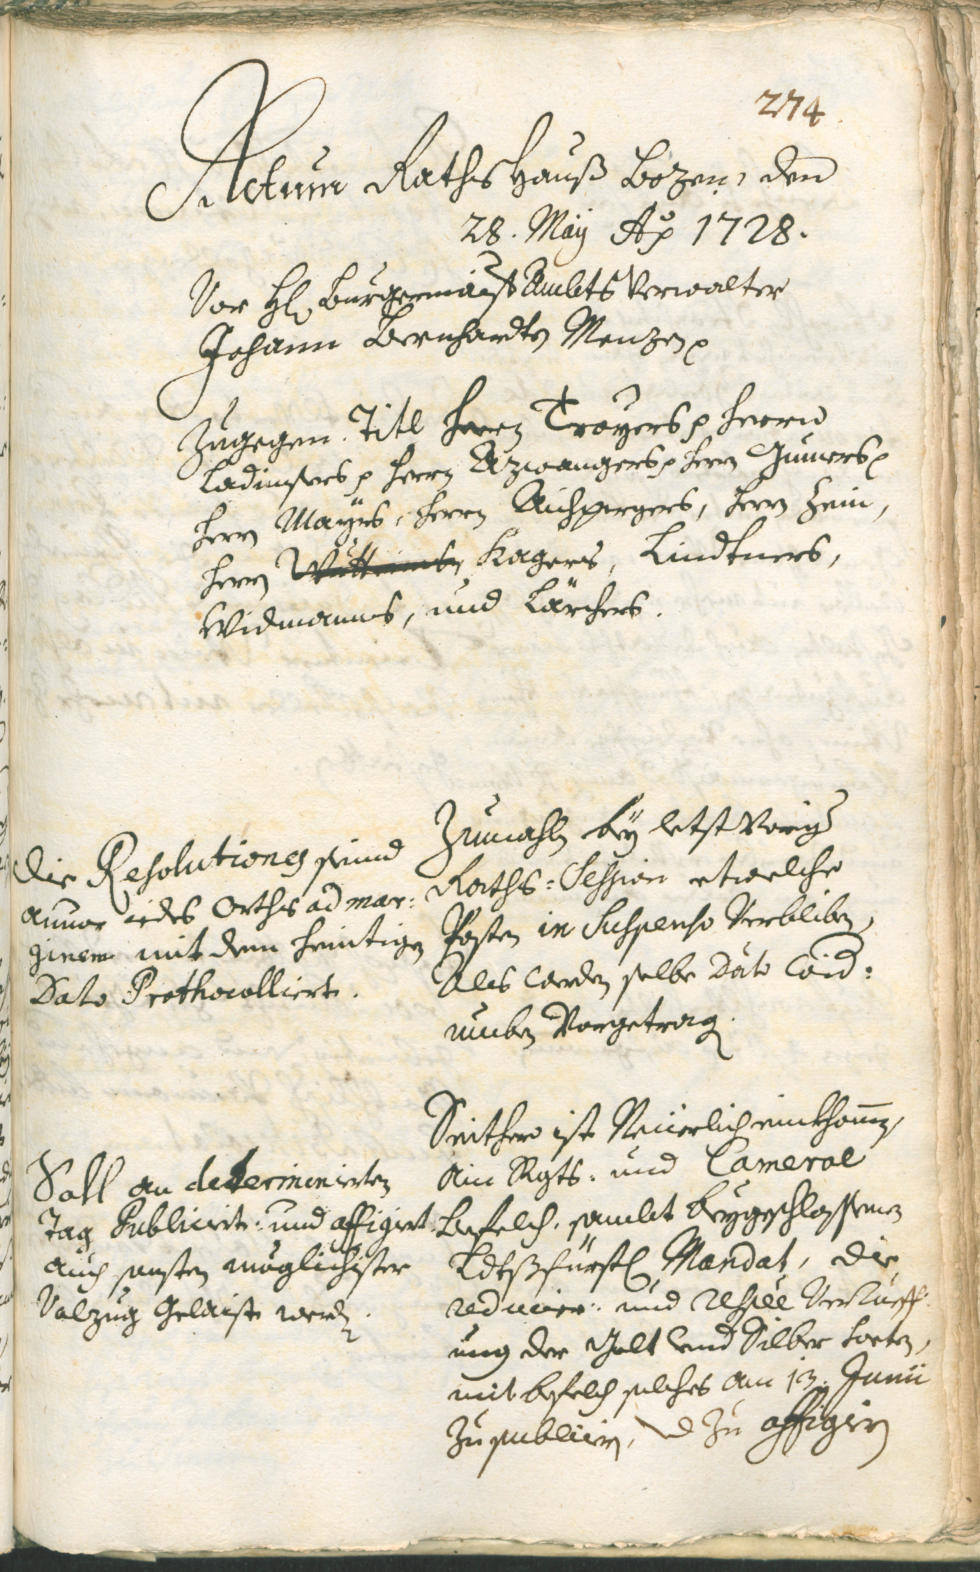 274
Actum Rathshauß Bozen, den
28. May Ao 1728.
Vor Hl Burgermaist Ambts Verwalter
Johann Bernhardtn Menzen
Zugegen. Titl herrn Troyers herrn
Ladinsers herrn Azwangers herrn Gumers
herrn Mayrs, herrn Aichpergers, herrn Zein,
herrn Kagers, Lindtners,
Widmanns, und Lärchers.
Die Resolutiones seind
anvor iedes Orths ad mar:
ginem mit dem heintigen
Dato Prothocolliert.
Zumahln bey letst Vorig
Raths-Session etwelche
Posten in Suspenso Verbliben,
Als werden selbe Dato wid:
umben Vorgetragen.
Soll an determinierten
Tag Publiciert: und affigiert
auch sonsten möglichister
Volzug Gelaist werden.
Seithero ist Neuerlich einkhomen,
Ain Rgts: und Cameral
Befelch, sambt beygeschlossenen
Ldtsfürstl Mandat, die
reducier: und Verrueff:
ung der Golt und Silber Sorten,
mit befelch solches am 13. Junii
Zu publiciern, und Zu affigiern